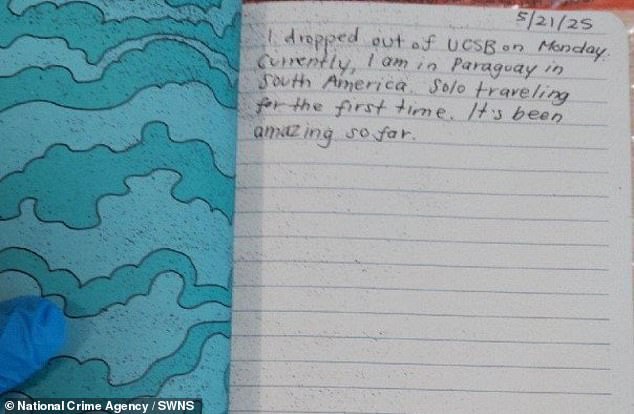 5/21/25
I dropped out of UCSB on Monday.
Currently, I am in Paraguay in
South America. Solo traveling
for the first time. It's been
amazing so far.
© National Crime Agency / SWNS